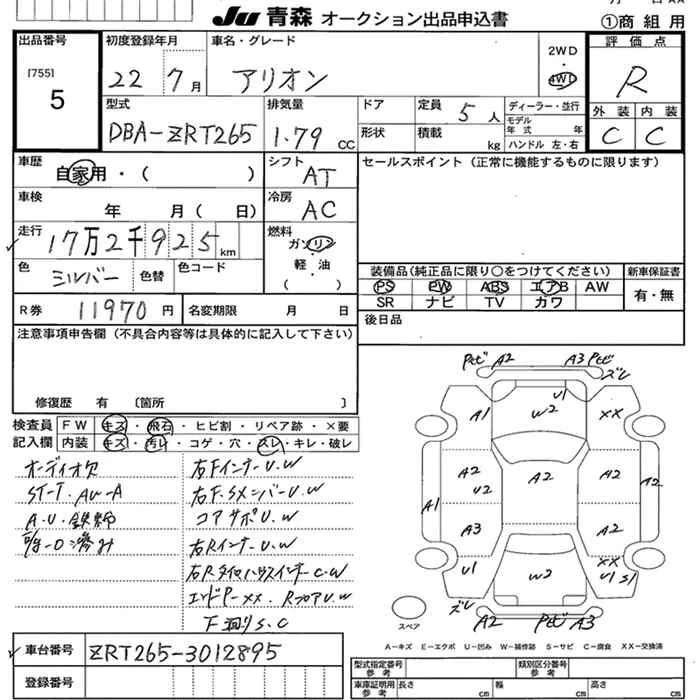 Ju 青森 オークション出品申込書 ①商組用
出品番号
[755]
5
初度登録年月
22年7月
車名・グレード
アリオン
2WD
4WD
評価点
R
外装 内装
C C
型式
DBA-ZRT265
排気量
1.79 CC
ドア
形状
定員 5人
積載 kg
ディーラー・並行
モデル年式 年
ハンドル 左・右
車歴
自家用・( )
シフト
AT
セールスポイント(正常に機能するものに限ります)
車検
年 月( 日)
冷房
AC
走行
17万2千925 km
燃料
ガソリン
軽・油
( )
色
シルバー
色替
色コード
装備品(純正品に限り○をつけてください)
PS PW ABS エアB AW
SR ナビ TV カワ
新車保証書
有・無
R券 11970円
名変期限 月 日
後日品
注意事項申告欄(不具合内容等は具体的に記入して下さい)
修復歴 有 〔箇所 〕
検査員 FW キズ・飛石・ヒビ割・リペア跡・×要
記入欄 内装 キズ・汚レ・コゲ・穴・スレ・キレ・破レ
オーディオ欠
ST-T・AW-A
A・U・鉄
右FインナーU.W
右F.SメンバーU.W
コアサポU.W
右RインナーU.W
右RタイヤハウスインナーC.W
エンドP-XX. RフロアU.W
下廻りS.C
Pセビ A2 A3 Pセビ
ズレ
A1 U1 W2 XX
A2 U2 A2 A2
A1 A2
A3 A2
U1 W2 XX U1 S1
ズレ
A2 Pセビ A3
スペア
A－キズ E－エクボ U－凹み W－補修跡 S－サビ C－腐食 XX－交換済
車台番号
ZRT265-3012895
登録番号
型式指定番号 参考
類別区分番号 参考
車庫証明用 参考 長さ cm 幅 cm 高さ cm